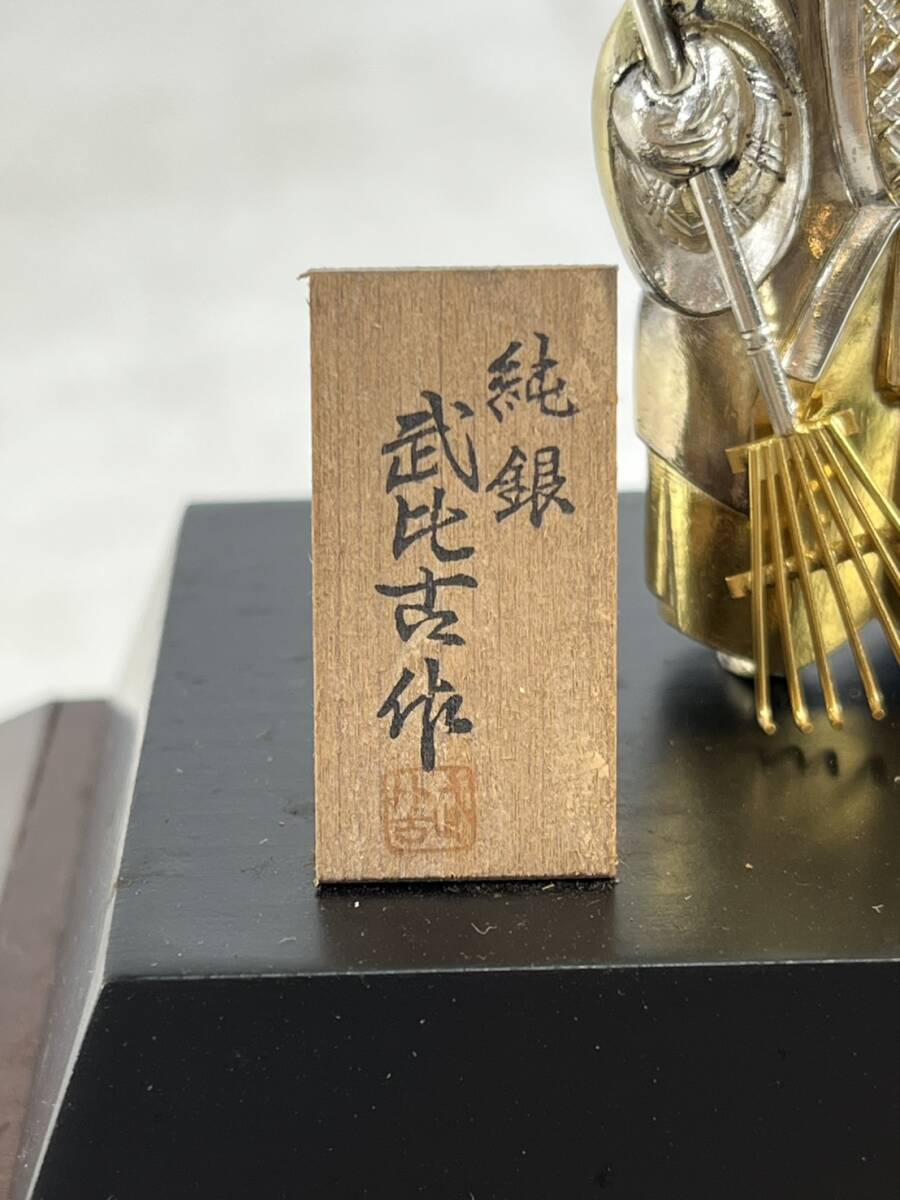 純銀
武比古作